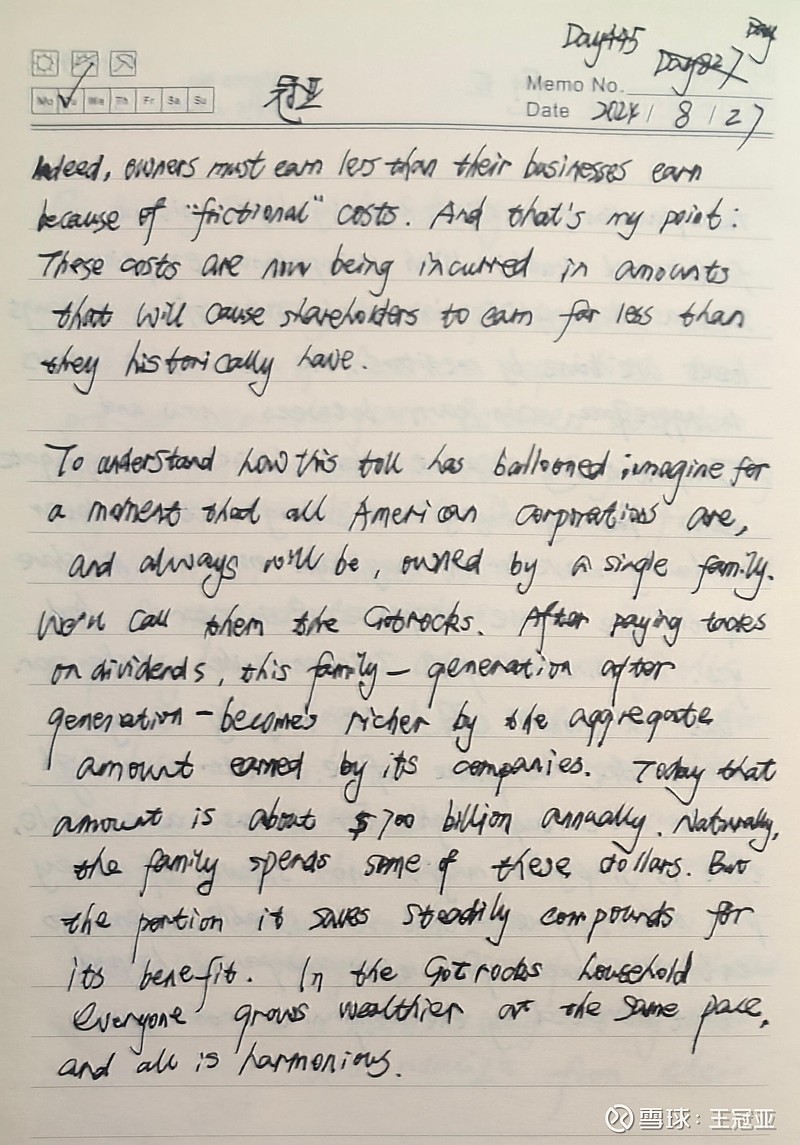 Day445
Day827
Day
Memo No.
Mo Tu We Th Fr Sa Su
冠亚
Date 2024 / 8 / 27
Indeed, owners must earn less than their businesses earn
because of "frictional" costs. And that's my point:
These costs are now being incurred in amounts
that will cause shareholders to earn far less than
they historically have.
To understand how this toll has ballooned, imagine for
a moment that all American corporations are,
and always will be, owned by a single family.
We'll call them the Gotrocks. After paying taxes
on dividends, this family — generation after
generation — becomes richer by the aggregate
amount earned by its companies. Today that
amount is about $700 billion annually. Naturally,
the family spends some of these dollars. But
the portion it saves steadily compounds for
its benefit. In the Gotrocks household
everyone grows wealthier at the same pace,
and all is harmonious.
雪球:王冠亚